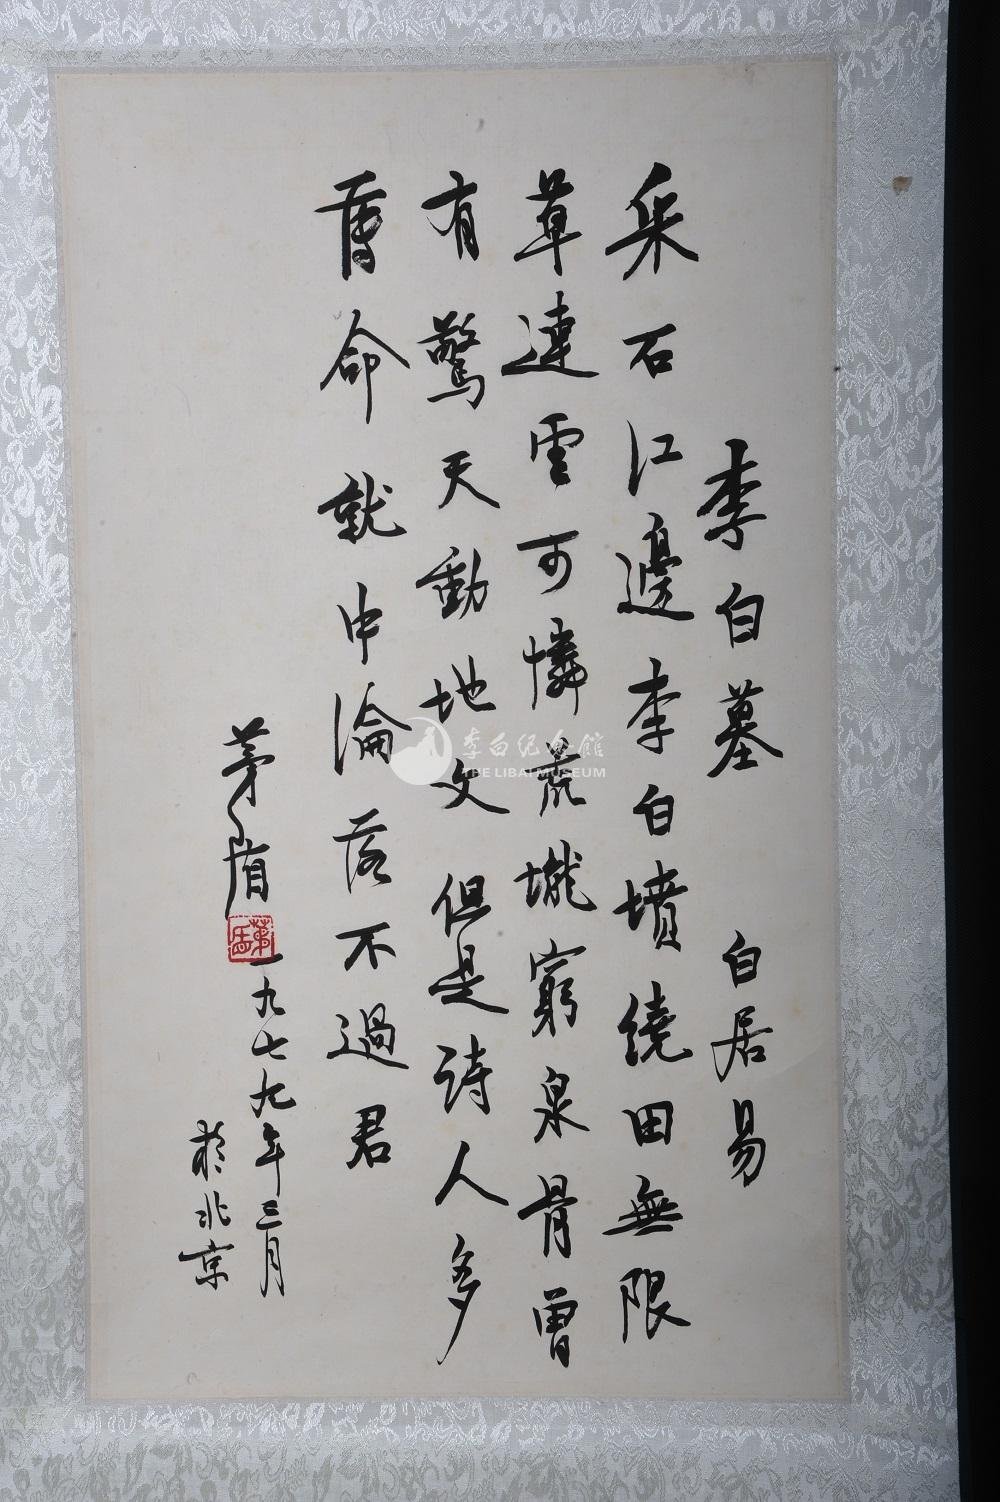 李白墓 白居易
采石江邊李白墳繞田無限
草連雲可憐荒壠窮泉骨曾
有驚天動地文但是詩人多
薄命就中淪落不過君
茅盾
一九七九年三月
於北京
李白纪念館
THE LIBAI MUSEUM